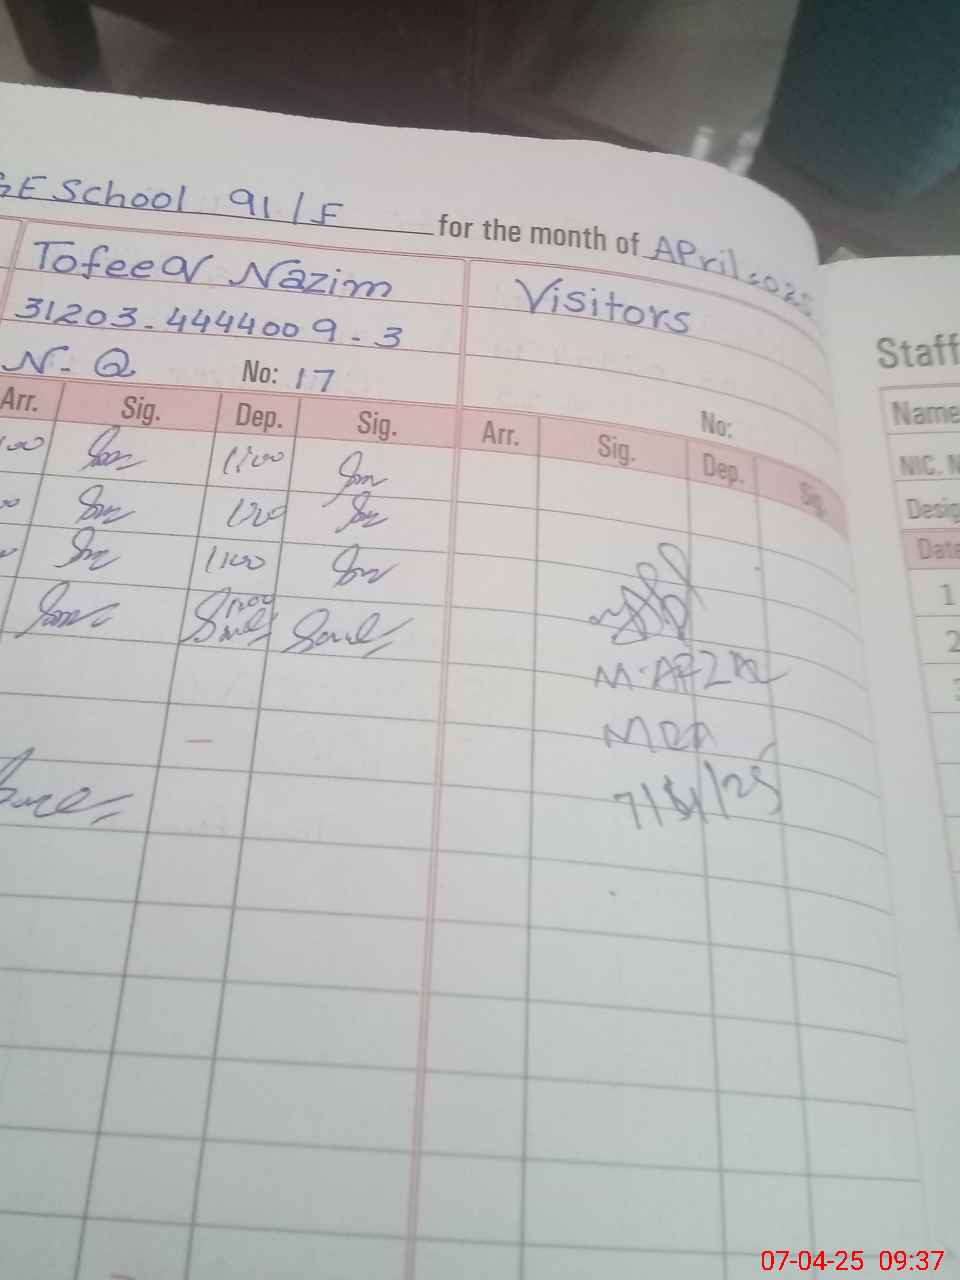 GE School 91/F for the month of April 2025
Tofeeq Nazim
31203-4444009-3
N-Q No: 17
Visitors
No:
Arr. Sig. Dep. Sig.
Arr. Sig. Dep. Sig.
1100
1100
1100
1100
M. AFZAL
MEA
7/4/25
Staff
Name
NIC. N
Desig
Date
1
2
3
07-04-25 09:37